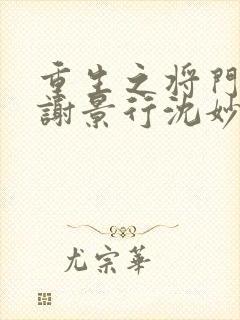 重生之将門
謝景行沈妙
尤宗華